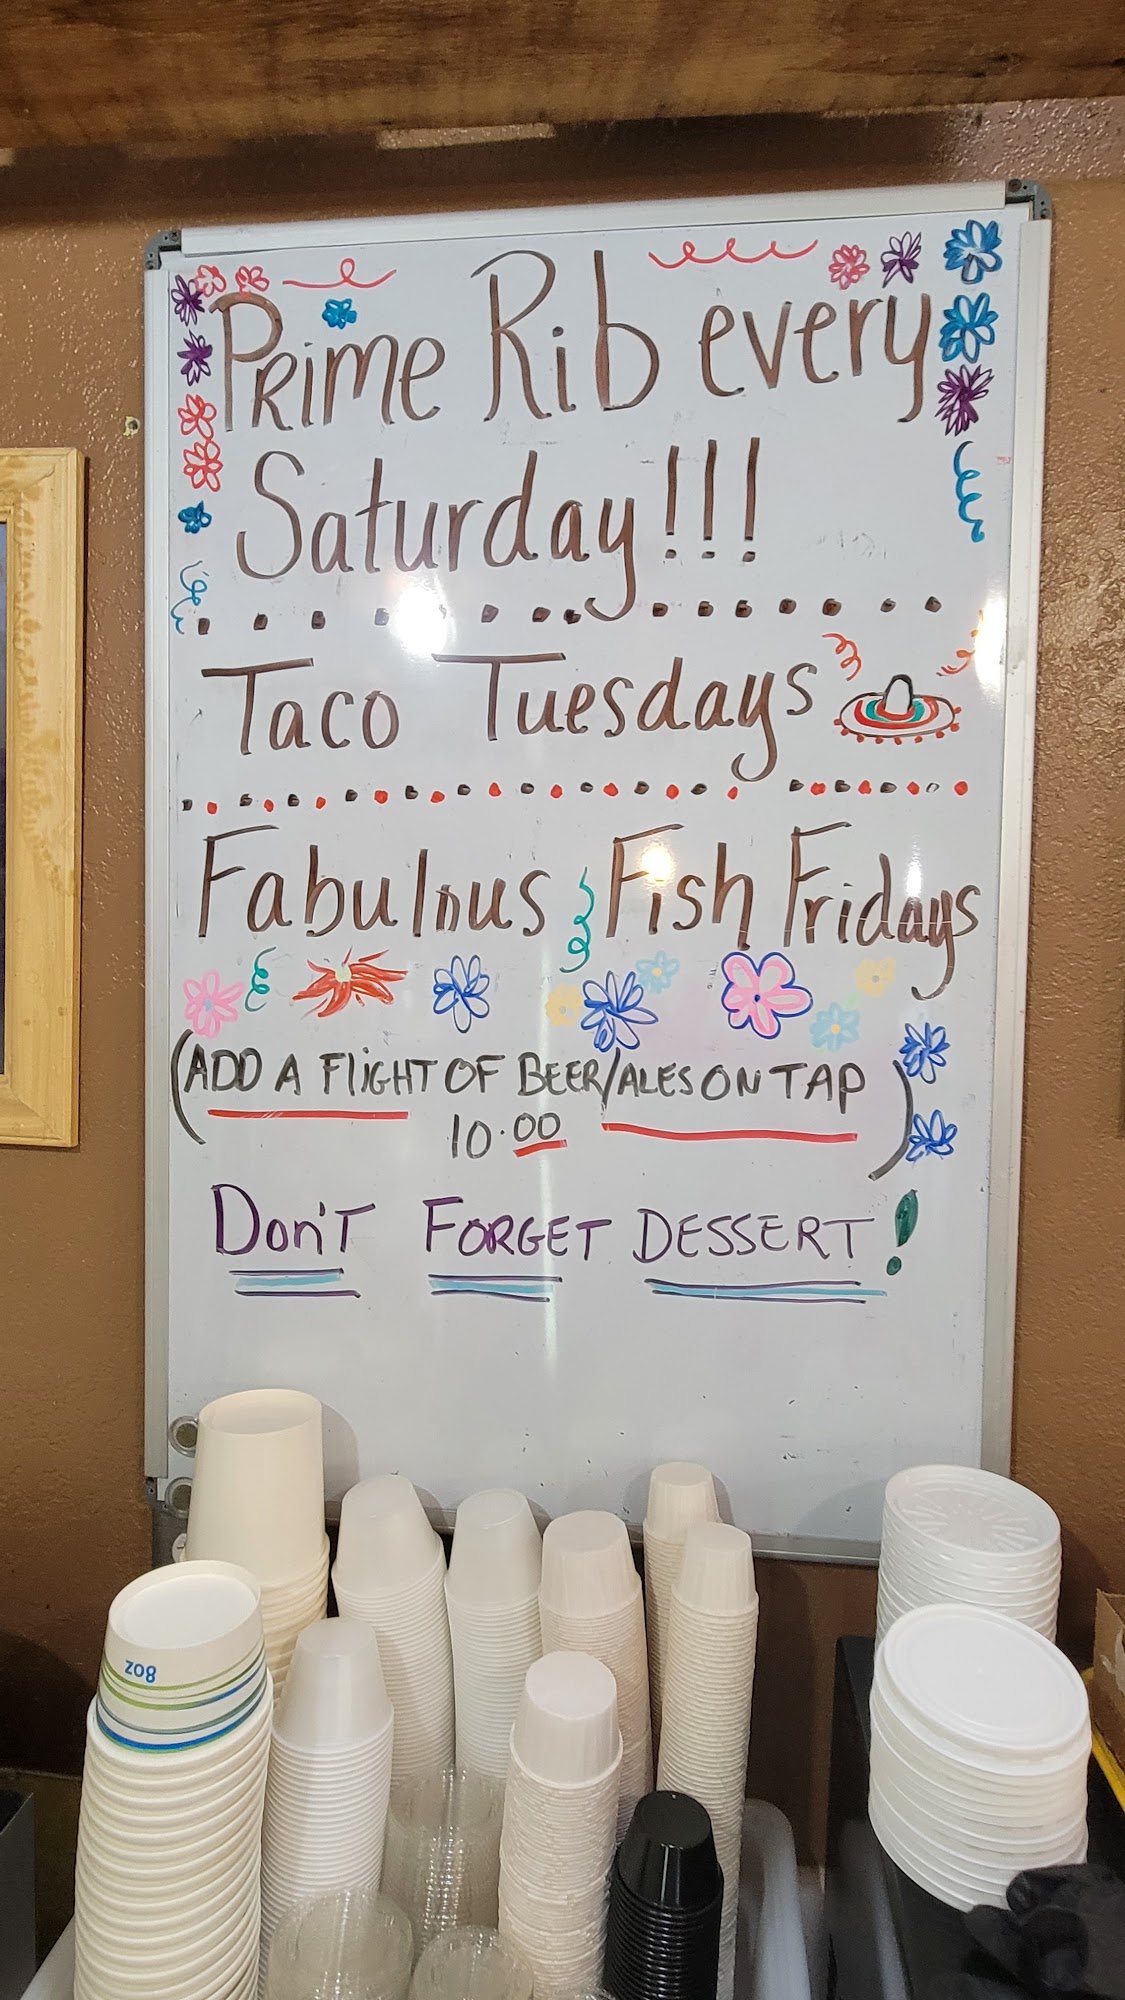 Prime Rib every
Saturday!!!
Taco Tuesdays
Fabulous Fish Fridays
(ADD A FLIGHT OF BEER/ALES ON TAP)
10.00
Don't FORGET DESSERT!
8oz